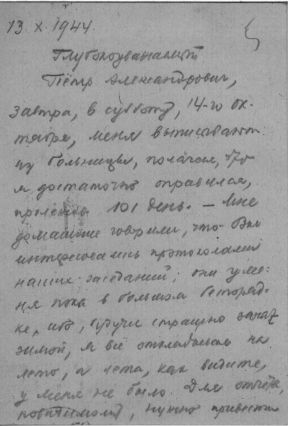 13.X.1944.
Глубокоуважаемый
Пётр Александрович,
завтра, в субботу, 14-го ок-
тября, меня выписывают
из больницы, полагая, что
я достаточно оправился,
пролежав 101 день. — Мне
домашние говорили, что Вы
интересовались протоколами
наших заседаний; они у ме-
ня пока в большом беспоряд-
ке, ибо, будучи страшно занят
зимой, я всё откладывал на
лето, а лета, как видите,
у меня не было. Для отчёта,
повидимому, нужно привести